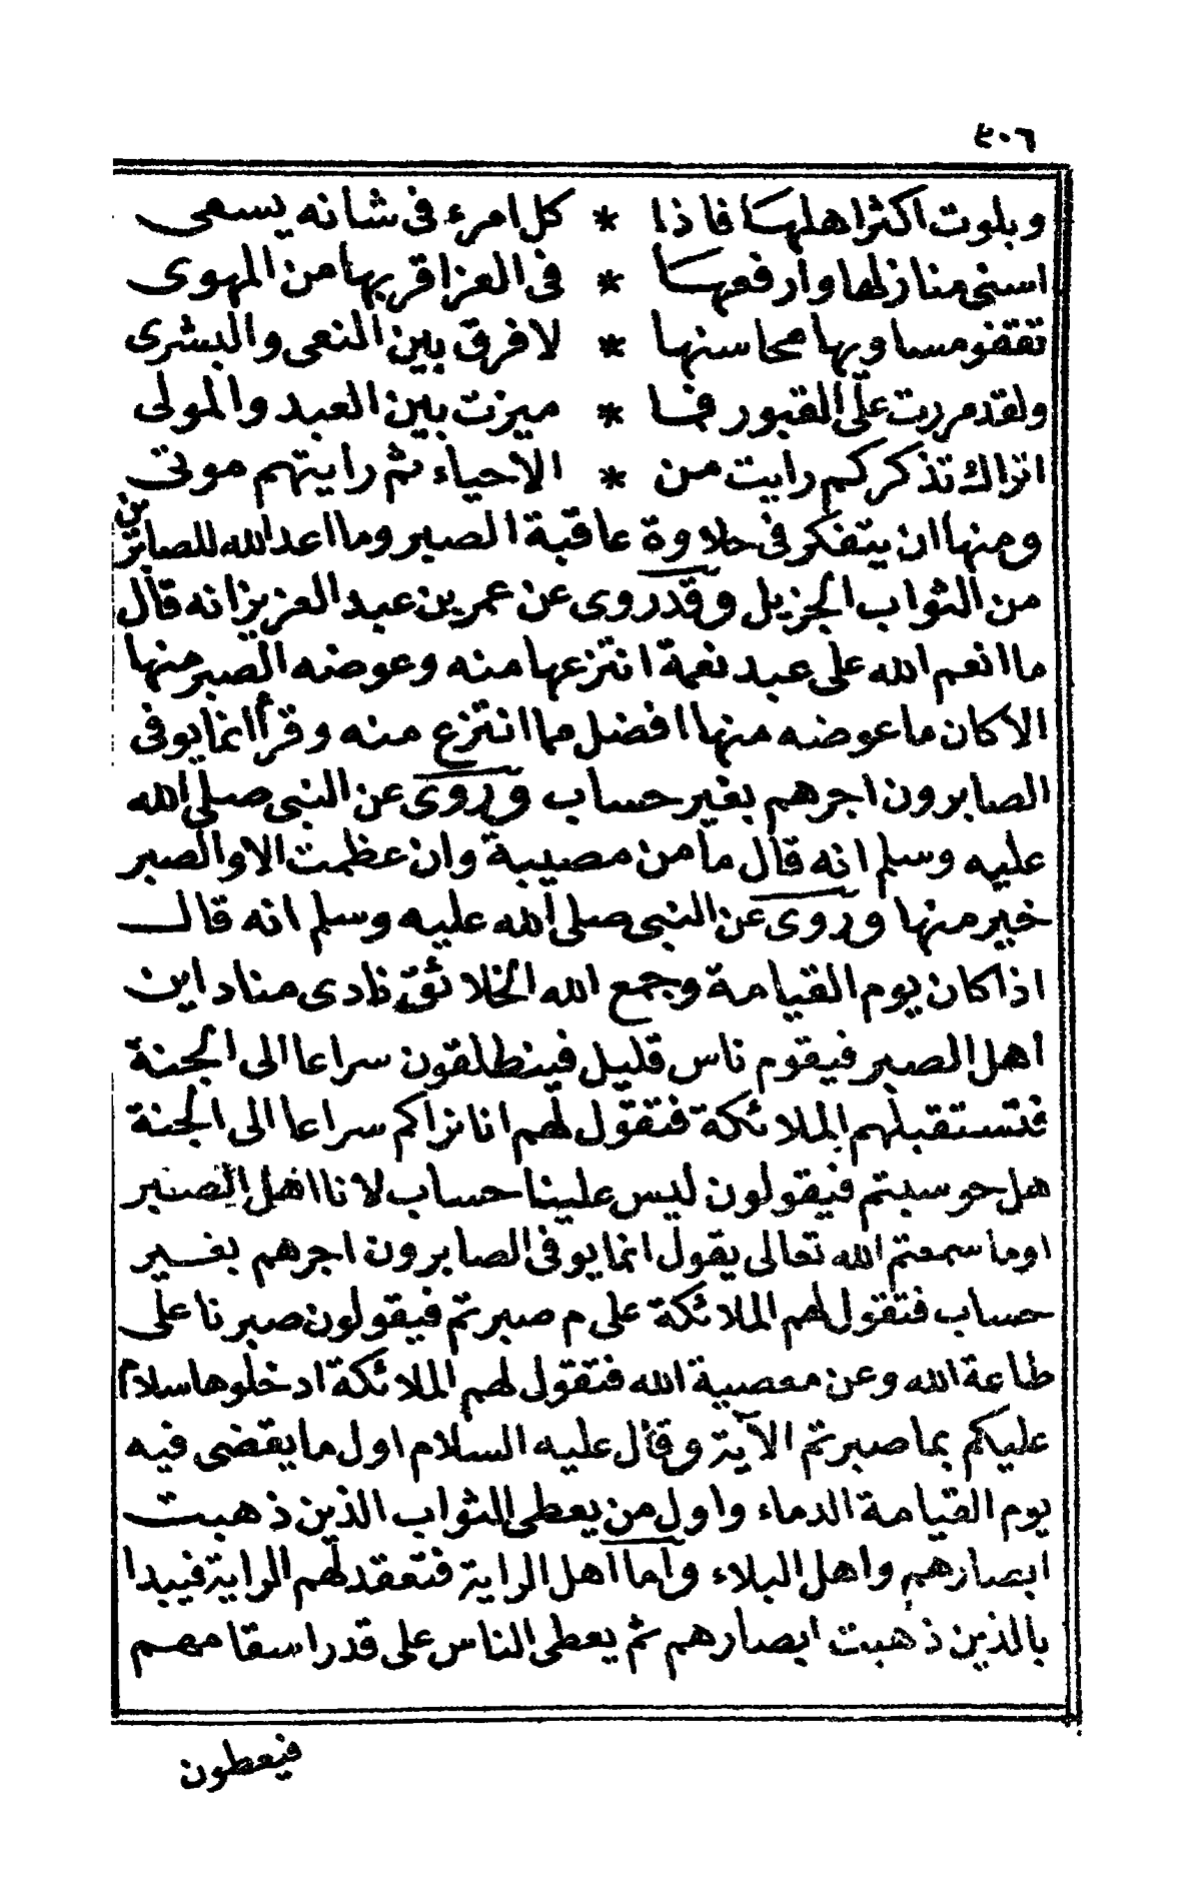 ٤٠٦
وبلوت اكثر اهلها فاذا * كل امرء فى شانه يسعى
اسنى منازلها وأرفعها * فى العز اقربها من المهوى
تقفو مساويها محاسنها * لا فرق بين النعى والبشرى
ولقد مررت على القبور فما * ميزت بين العبد والمولى
اتراك تذكر كم رايت من * الاحياء ثم رايتهم موتى
ومنها ان يتفكر فى حلاوة عاقبة الصبر وما اعد الله للصابرين
من الثواب الجزيل وقد روى عن عمر بن عبد العزيز انه قال
ما انعم الله على عبد نعمة انتزعها منه وعوضه الصبر منها
الا كان ما عوضه منها افضل مما انتزع منه وقرأ انما يوفى
الصابرون اجرهم بغير حساب وروى عن النبى صلى الله
عليه وسلم انه قال ما من مصيبة وان عظمت الا والصبر
خير منها وروى عن النبى صلى الله عليه وسلم انه قال
اذا كان يوم القيامة وجمع الله الخلائق نادى مناد اين
اهل الصبر فيقوم ناس قليل فينطلقون سراعا الى الجنة
فتستقبلهم الملائكة فتقول لهم انا نراكم سراعا الى الجنة
هل حوسبتم فيقولون ليس علينا حساب لانا اهل الصبر
اوما سمعتم الله تعالى يقول انما يوفى الصابرون اجرهم بغير
حساب فتقول لهم الملائكة على م صبرتم فيقولون صبرنا على
طاعة الله وعن معصية الله فتقول لهم الملائكة ادخلوها سلام
عليكم بما صبرتم الآية وقال عليه السلام اول ما يقضى فيه
يوم القيامة الدماء واول من يعطى الثواب الذين ذهبت
ابصارهم واهل البلاء واما اهل الراية فتعقد لهم الراية فيبدا
بالذين ذهبت ابصارهم ثم يعطى الناس على قدر اسقامهم
فيعطون